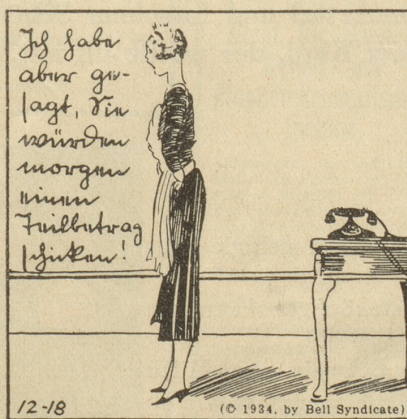 Ich habe
aber ge-
sagt, Sie
würden
morgen
einen
Teilbetrag
schicken!
12-18
(© 1934, by Bell Syndicate)